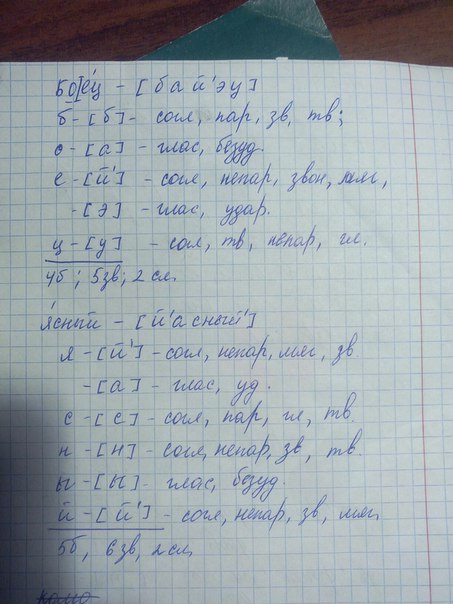 Бое́ц - [бай'эц]
б - [б] - согл, пар, зв, тв;
о - [а] - глас, безуд.
е - [й'] - согл, непар, звон, мяг,
- [э] - глас, удар.
ц - [ц] - согл, тв, непар, гл.
4б; 5зв; 2 сл.
я́сный - [й'асный']
я - [й'] - согл, непар, мяг, зв
- [а] - глас, уд.
с - [с] - согл, пар, гл, тв.
н - [н] - согл, непар, зв, тв.
ы - [ы] - глас, безуд.
й - [й'] - согл, непар, зв, мяг,
5б, 6зв, 2 сл,